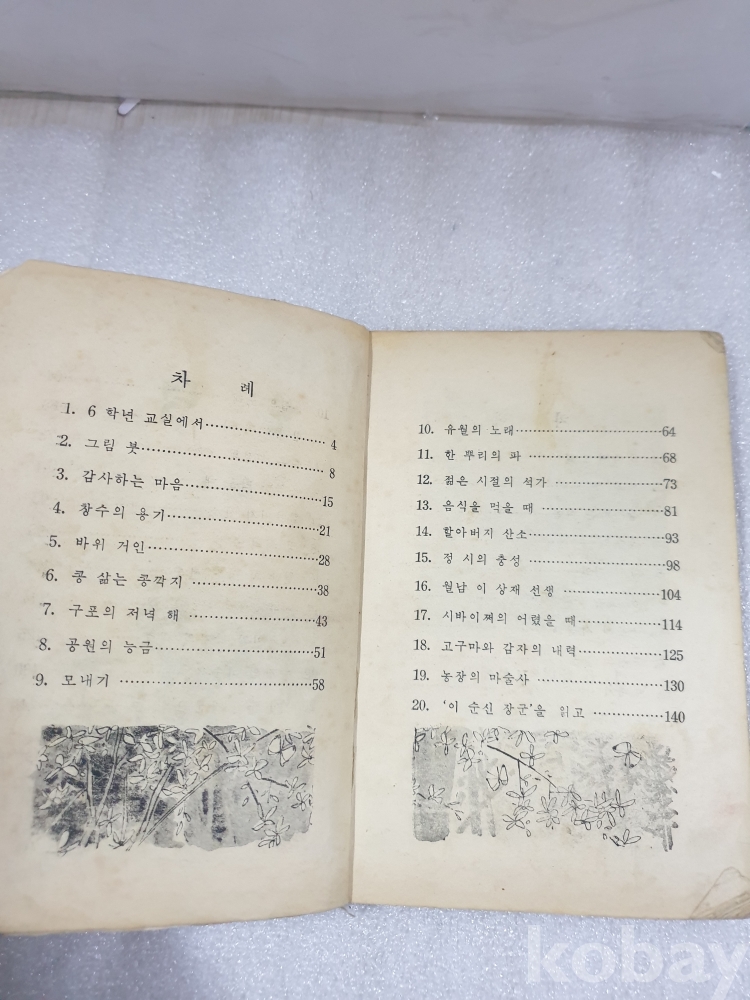 차 례
1. 6 학년 교실에서 4
2. 그림 붓 8
3. 감사하는 마음 15
4. 창수의 용기 21
5. 바위 거인 28
6. 콩 삶는 콩깍지 38
7. 구포의 저녁 해 43
8. 공원의 능금 51
9. 모내기 58
10. 유월의 노래 64
11. 한 뿌리의 파 68
12. 젊은 시절의 석가 73
13. 음식을 먹을 때 81
14. 할아버지 산소 93
15. 정 시의 충성 98
16. 월남 이 상재 선생 104
17. 시바이쩌의 어렸을 때 114
18. 고구마와 감자의 내력 125
19. 농장의 마술사 130
20. ‘이 순신 장군’을 읽고 140
kobay